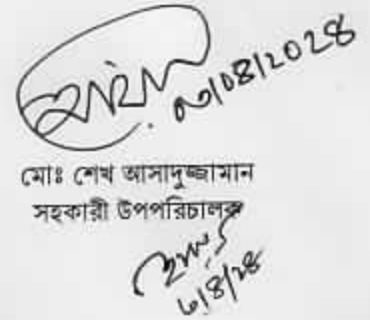 ৩/০৪/২০২৪
মোঃ শেখ আসাদুজ্জামান
সহকারী উপপরিচালক
৬/৪/২৪